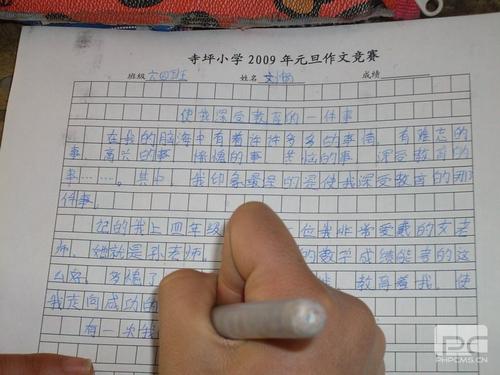 寺坪小学2009年元旦作文竞赛
班级 六四班 姓名 成绩
使我深受教育的一件事
在我的脑海中有着许许多多的事情,有难忘的
事、高兴的事、愤愤的事、苦恼的事、深受教育的
事……。其中,我印象最深的是使我深受教育的那
件事。
记的我上四年级 位我非常爱戴的文老
师,她就是孙老师。 的数学成绩能考的这
么好,多亏了 教育着我,使
我走向成功的
有一次我
PC
PHPCMS.CN